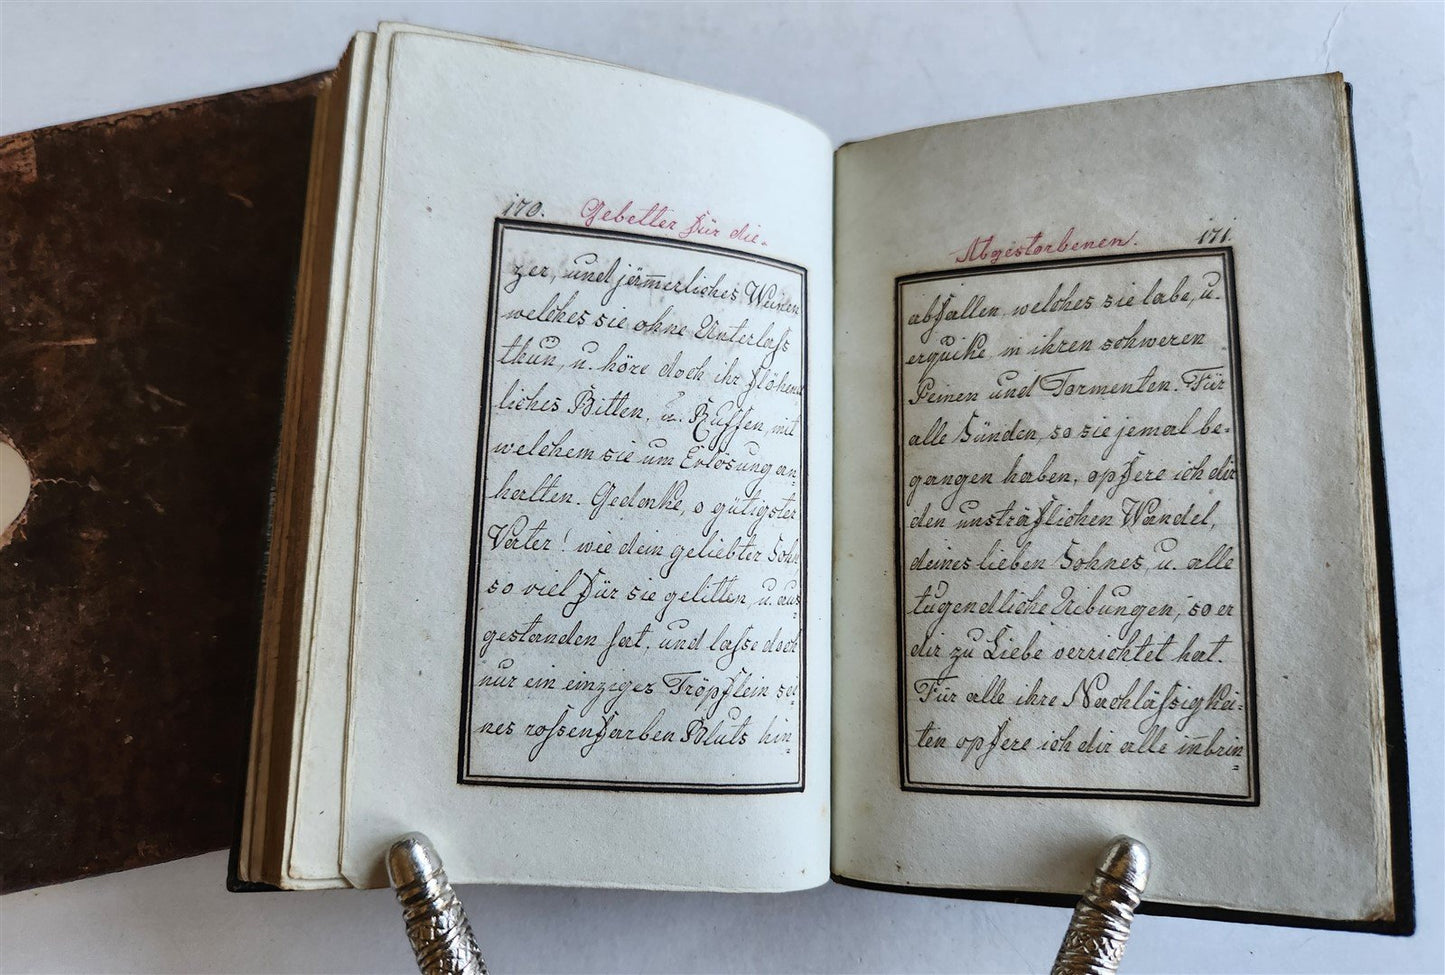 170. Gebetter für die
zer, und jäm̄erliches Weinen
welches sie ohne Unterlaſs
thun, u. höre doch ihr flöhend
liches Bitten, u. Ruffen, mit
welchem sie um Erlösung an=
halten. Gedenke, o gütigster
Vatter! wie dein geliebter Sohn
so viel für sie gelitten, u. aus=
gestanden hat, und laſse doch
nur ein einziges Tröpflein sei
nes roſsenfarben Bluts hin=
Abgestorbenen. 171.
abfallen, welches sie labe, u.
erquike in ihren schweren
Peinen und Tormenten. Für
alle Sünden, so sie jemal be=
gangen haben, opfere ich dir
den unsträflichen Wandel,
deines lieben Sohnes, u. alle
tugendliche Uibungen, so er
dir zu Liebe verrichtet hat.
Für alle ihre Nachläſsigkei=
ten opfere ich dir alle in̄brin=